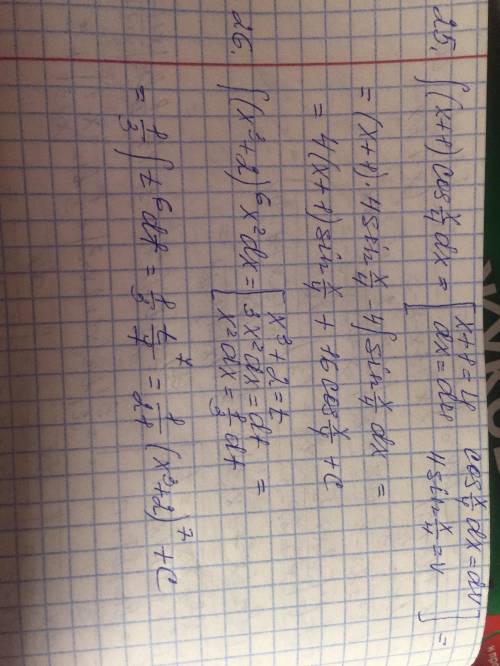 25. ∫(x+1)cos x/4 dx = [x+1=u cos x/4 dx=dv
dx=du 4sin x/4=v] =
= (x+1)·4sin x/4 - 4∫sin x/4 dx =
= 4(x+1)sin x/4 + 16cos x/4 + C
26. ∫(x³+2)⁶x²dx = [x³+2=t
3x²dx=dt
x²dx=1/3 dt =
= 1/3 ∫t⁶dt = 1/3 t⁷/7 = 1/21 (x³+2)⁷ + C